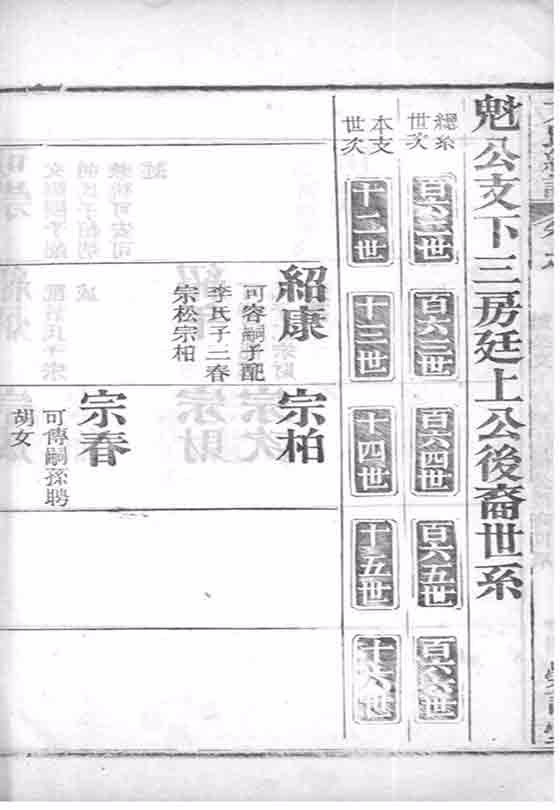 魁公支下三房廷上公後裔世系
總系世次
百六二世
百六三世
百六四世
百六五世
百六六世
本支世次
十二世
十三世
十四世
十五世
十六世
紹康
可容嗣子配
李氏子二春
宗松宗柏
宗柏
宗春
可傳嗣孫聘
胡女